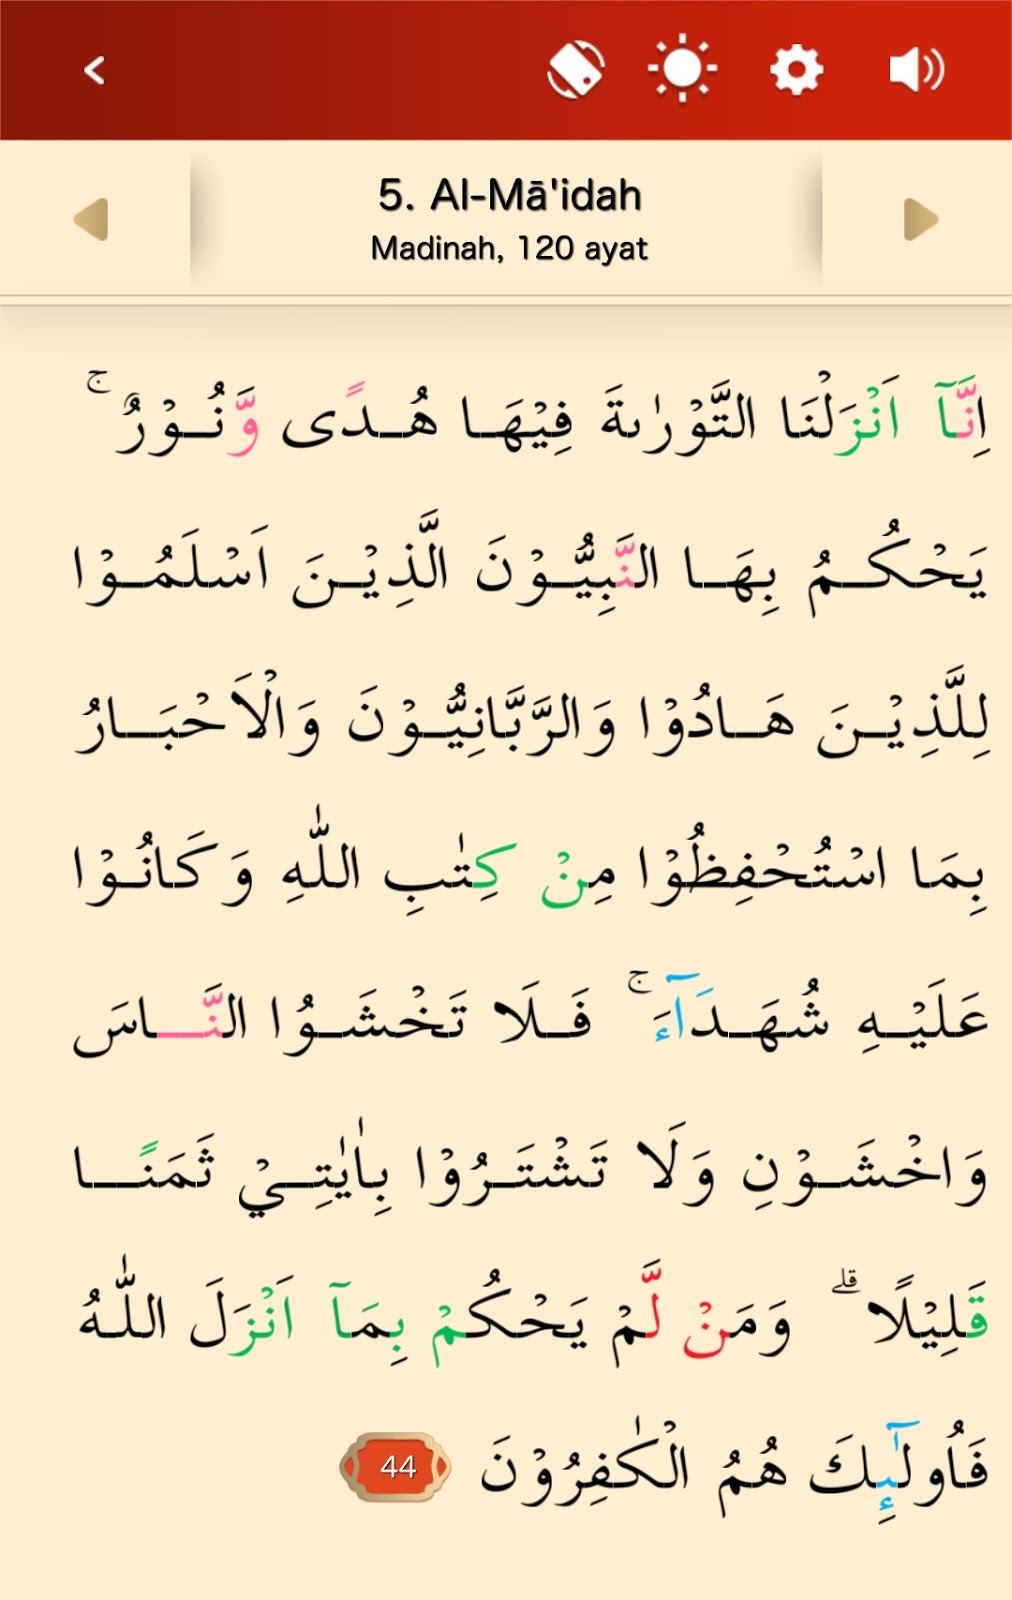 5. Al-Mā'idah
Madinah, 120 ayat
اِنَّآ اَنْزَلْنَا التَّوْرٰىةَ فِيْهَا هُدًى وَّنُوْرٌ ۚ
يَحْكُمُ بِهَا النَّبِيُّوْنَ الَّذِيْنَ اَسْلَمُوْا
لِلَّذِيْنَ هَادُوْا وَالرَّبَّانِيُّوْنَ وَالْاَحْبَارُ
بِمَا اسْتُحْفِظُوْا مِنْ كِتٰبِ اللّٰهِ وَكَانُوْا
عَلَيْهِ شُهَدَآءَ ۚ فَلَا تَخْشَوُا النَّاسَ
وَاخْشَوْنِ وَلَا تَشْتَرُوْا بِاٰيٰتِيْ ثَمَنًا
قَلِيْلًا ۗ وَمَنْ لَّمْ يَحْكُمْ بِمَآ اَنْزَلَ اللّٰهُ
فَاُولٰۤىِٕكَ هُمُ الْكٰفِرُوْنَ 44